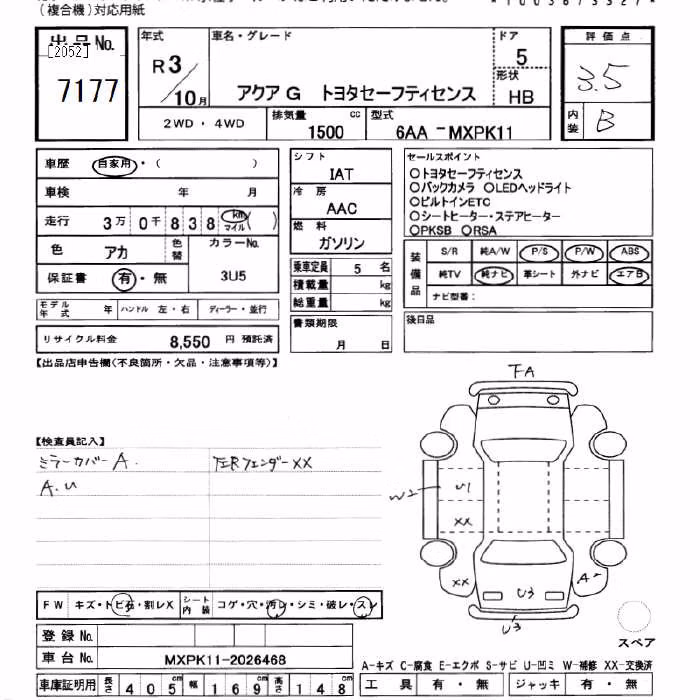 （複合機）対応用紙
出品No.
[2052]
7177
年式
R3/10月
車名・グレード
アクア G トヨタセーフティセンス
ドア
5
形状
HB
評価点
3.5
内装
B
2WD・4WD
排気量
1500 cc
型式
6AA －MXPK11
車歴 自家用・（ ）
車検 年 月
走行 3万0千838 km マイル( )
色 アカ
色替
カラーNo.
3U5
保証書 有・無
モデル年式 年 ハンドル 左・右 ディーラー・並行
リサイクル料金 8,550 円 預託済
シフト
IAT
冷房
AAC
燃料
ガソリン
乗車定員 5 名
積載量 kg
総重量 kg
書類期限
月 日
セールスポイント
○トヨタセーフティセンス
○バックカメラ ○LEDヘッドライト
○ビルトインETC
○シートヒーター・ステアヒーター
○PKSB ○RSA
装備品
S/R 純A/W P/S P/W ABS
純TV 純ナビ 革シート 外ナビ エアB
ナビ型番：
後日品
【出品店申告欄（不良箇所・欠品・注意事項等）】
【検査員記入】
ミラーカバーA.
A.U
左Rフェンダー XX
FA
W2
U1
XX
XX
A2
U3
U3
スペア
FW キズ・トビ石・割レX
シート内装 コゲ・穴・汚レ・シミ・破レ・スレ
登録No.
車台No. MXPK11-2026468
車庫証明用 長さ 405cm 幅 169cm 高さ 148cm
A-キズ C-腐食 E-エクボ S-サビ U-凹ミ W-補修 XX-交換済
工具 有・無 ジャッキ 有・無